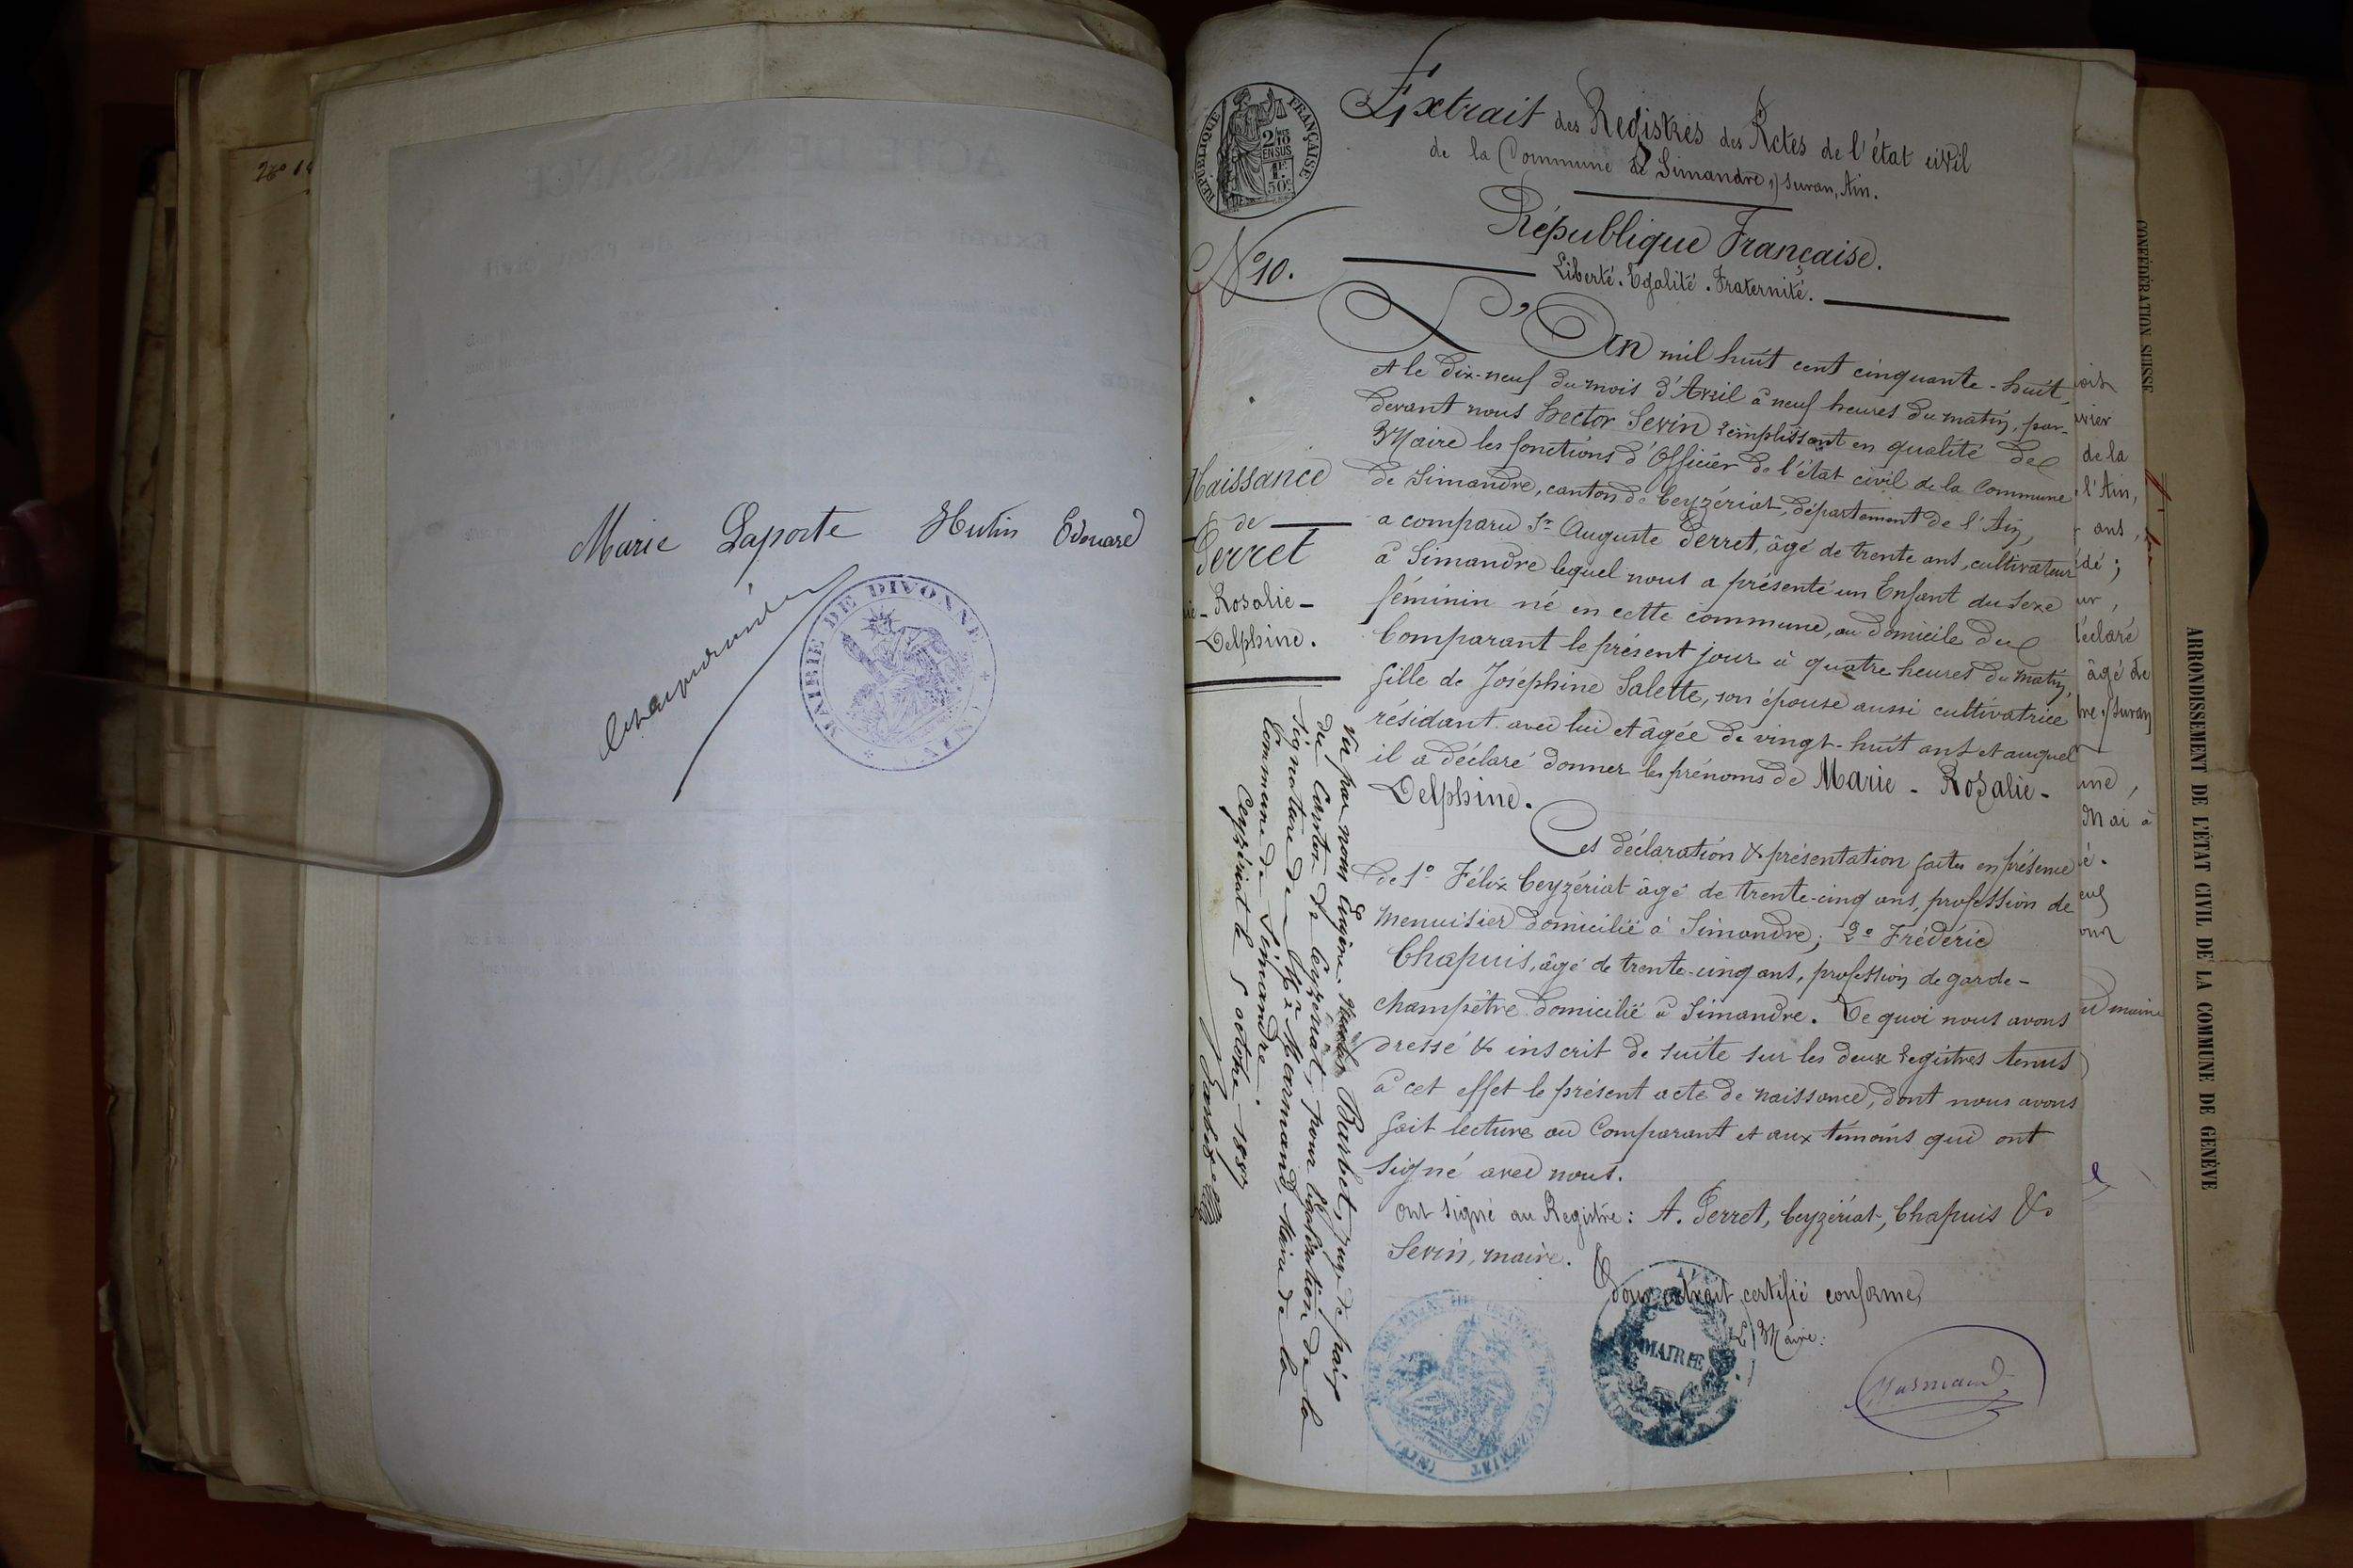 Marie Laporte Hutin Edouard
MAIRIE DE DIVONNE (AIN)
RÉPUBLIQUE FRANÇAISE
2/10 EN SUS
1F. 50c
Extrait des Registres des Actes de l'état civil
de la Commune de Simandre s/ Suran, Ain.
République Française.
Liberté. Egalité. Fraternité.
N° 10.
Naissance
de
Perret
Rosalie-
Delphine.
L'An mil huit cent cinquante-huit,
et le dix-neuf du mois d'Avril à neuf heures du matin, par-
devant nous Hector Sevin remplissant en qualité de
Maire les fonctions d'Officier de l'état civil de la Commune
de Simandre, canton de Ceyzériat, département de l'Ain,
a comparu Sr. Auguste Perret, âgé de trente ans, cultivateur
à Simandre lequel nous a présenté un Enfant du sexe
féminin né en cette commune, au domicile du
Comparant le présent jour à quatre heures du matin,
fille de Joséphine Salette, son épouse aussi cultivatrice
résidant avec lui et âgée de vingt-huit ans et auquel
il a déclaré donner les prénoms de Marie - Rosalie -
Delphine.
Ces déclaration & présentation faites en présence
de 1° Félix Ceyzériat âgé de trente-cinq ans, profession de
menuisier domicilié à Simandre; 2° Frédéric
Chapuis, âgé de trente-cinq ans, profession de garde-
champêtre domicilié à Simandre. De quoi nous avons
dressé & inscrit de suite sur les deux registres tenus
à cet effet le présent acte de naissance, dont nous avons
fait lecture au Comparant et aux témoins qui ont
signé avec nous.
Ont signé au Registre: A. Perret, Ceyzériat, Chapuis &
Sevin, maire.
Pour extrait certifié conforme,
Le Maire:
Marmand
MAIRIE
Vu par nous Eugène Nicolas Barbet, juge de paix
du Canton de Ceyzériat, pour légalisation de la
signature de Mr. Marmand, Maire de la
Commune de Simandre.
Ceyzériat le 5 octobre 1887
Barbet
de la
l'Ain,
ans,
déclaré
âgé de
s/ Suran
Mai à
CONFÉDÉRATION SUISSE
ARRONDISSEMENT DE L'ÉTAT CIVIL DE LA COMMUNE DE GENÈVE